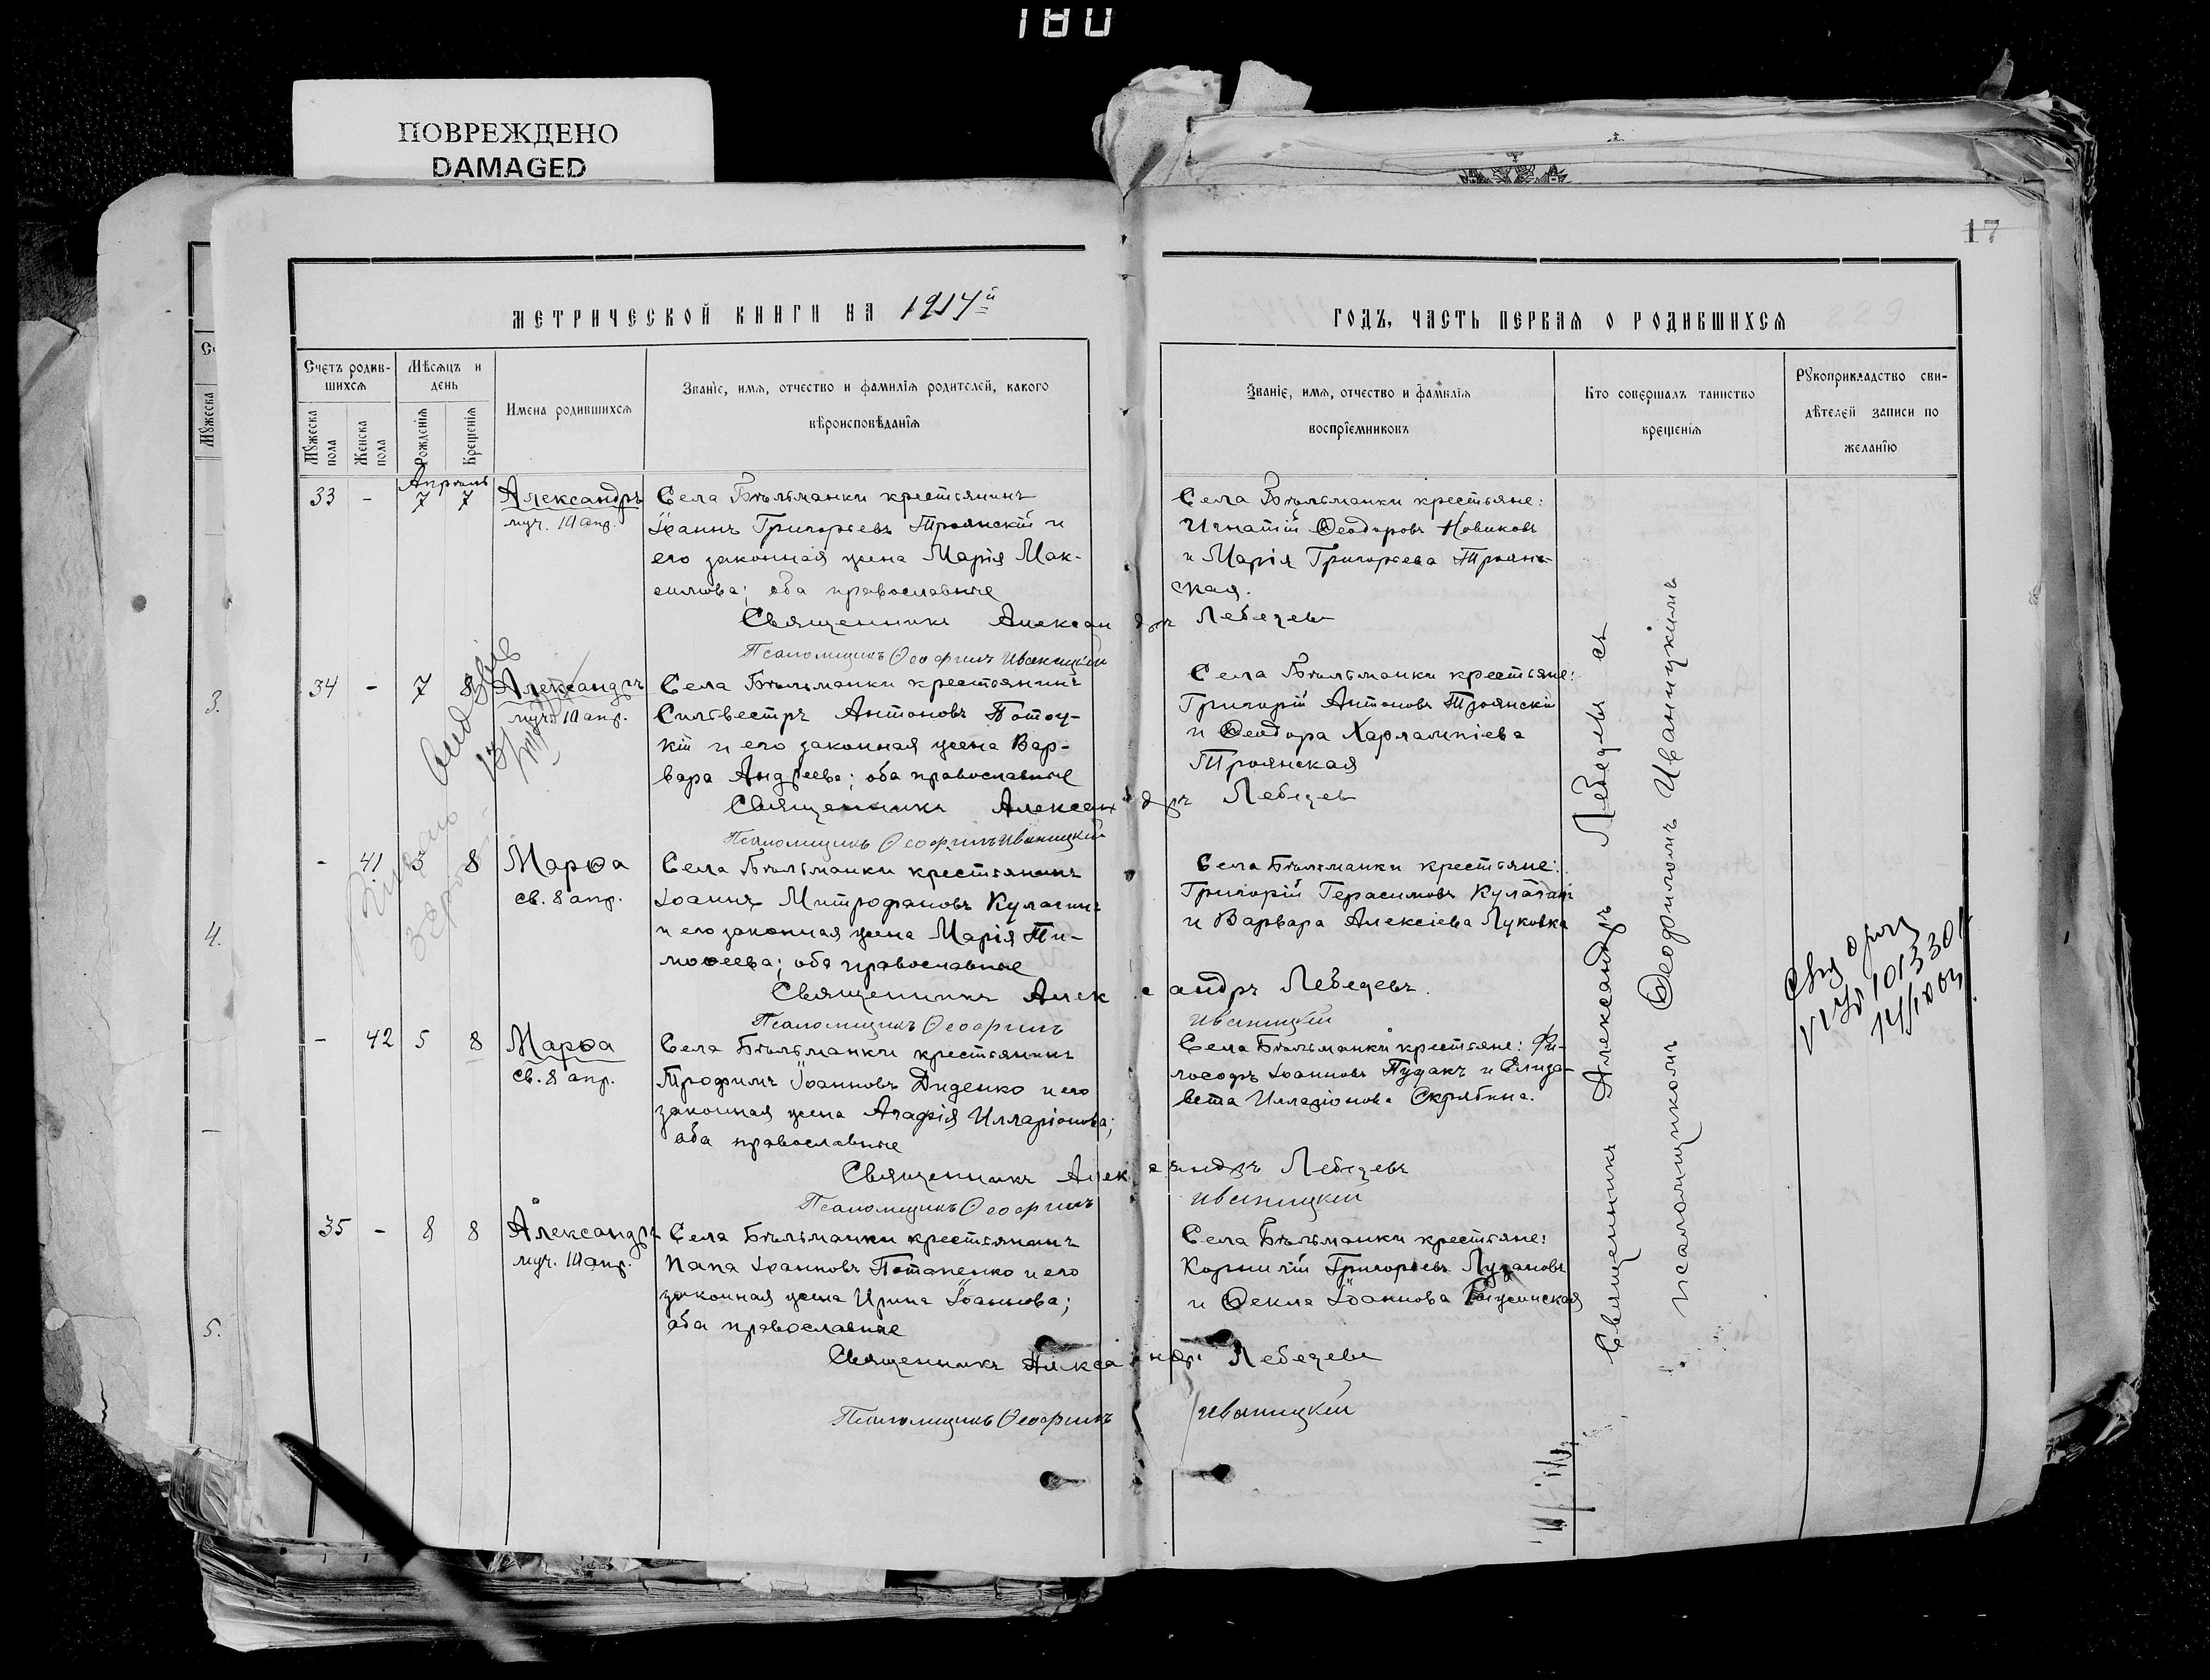 180
ПОВРЕЖДЕНО
DAMAGED
17
МЕТРИЧЕСКОЙ КНИГИ НА 1914й
ГОДЪ, ЧАСТЬ ПЕРВАЯ О РОДИВШИХСЯ
229
Счетъ родив-
шихся
Мѣсяцъ и
день
Мужеска
пола
Женска
пола
Рожденія
Крещенія
Имена родившихся
Званіе, имя, отчество и фамилія родителей, какого
вѣроисповѣданія
Званіе, имя, отчество и фамилія
воспріемниковъ
Кто совершалъ таинство
крещенія
Рукоприкладство сви-
дѣтелей записи по
желанію
Мужеска
Апрѣль
33 - 7 7 Александръ
муч. 10 апр.
Села Бѣльманки крестьянинъ
Іоаннъ Григорьевъ Троянскій и
его законная жена Марія Мак-
симова; оба православные
Села Бѣльманки крестьяне:
Игнатій Ѳеодоровъ Новиковъ
и Марія Григорьева Троян-
ская.
Священникъ Александръ Лебедевъ
Псаломщикъ Ѳеофилъ Иваницкій
34 - 7 8 Александръ
муч. 10 апр.
Села Бѣльманки крестьянинъ
Сильвестръ Антоновъ Потоц-
кій и его законная жена Вар-
вара Андреева; оба православные
Села Бѣльманки крестьяне:
Григорій Антоновъ Троянскій
и Ѳеодора Харлампіева
Троянская
Священникъ Александръ Лебедевъ
Псаломщикъ Ѳеофилъ Иваницкій
- 41 5 8 Марѳа
св. 8 апр.
Села Бѣльманки крестьянинъ
Іоаннъ Митрофановъ Кулагинъ
и его законная жена Марія Ти-
моѳеева; оба православные
Села Бѣльманки крестьяне:
Григорій Герасимовъ Кулагинъ
и Варвара Алексіева Луковка
Священникъ Александръ Лебедевъ.
Псаломщикъ Ѳеофилъ Иваницкій
- 42 5 8 Марѳа
св. 8 апр.
Села Бѣльманки крестьянинъ
Трофимъ Іоанновъ Диденко и его
законная жена Агафія Илларіонова;
оба православные
Села Бѣльманки крестьяне: Фи-
лософъ Іоанновъ Пудакъ и Елиза-
вета Илларіонова Скрябина.
Священникъ Александръ Лебедевъ
Псаломщикъ Ѳеофилъ Иваницкій
35 - 8 8 Александръ
муч. 10 апр.
Села Бѣльманки крестьянинъ
Папа Іоанновъ Потапенко и его
законная жена Ирина Іоаннова;
оба православные
Села Бѣльманки крестьяне:
Корнилій Григорьевъ Лузановъ
и Ѳекла Іоаннова
Священникъ Александръ Лебедевъ
Псаломщикъ Ѳеофилъ Иваницкій
Священникъ Александръ Лебедевъ съ
псаломщикомъ Ѳеофиломъ Иваницкимъ
3.
4.
5.